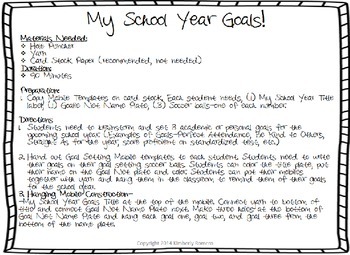 My School Year Goals!
Materials Needed:
Hole Puncher
Yarn
Card Stock Paper (recommended, not needed)
Duration:
90 Minutes
Preparation:
1. Copy Mobile Templates on card stock. Each student needs, (1) My School Year Title
label, (1) Goalie Net Name Plate, (3) Soccer balls-one of each number.
Directions:
1. Students need to brainstorm and set 3 academic or personal goals for the
upcoming school year. (Examples of Goals-Perfect Attendance, Be Kind to Others,
Straight As for the year, score proficient on standardized test, etc.)
2. Hand out Goal Setting Mobile templates to each student. Students need to write
their goals on the goal setting soccer balls. Students can color the title plate, put
their name on the Goal Net plate and color. Students can put their mobiles
together with yarn and hang them in the classroom to remind them of their goals
for the school year.
3. Hanging Mobile Construction-
-My School Year Goals Title at the top of the mobile. Connect yarn to bottom of
title and connect Goal Net Name plate next. Make three holes at the bottom of
Goal Net Name Plate and hang each goal one, goal two, and goal three from the
bottom of the name plate.
Copyright 2014 Kimberly